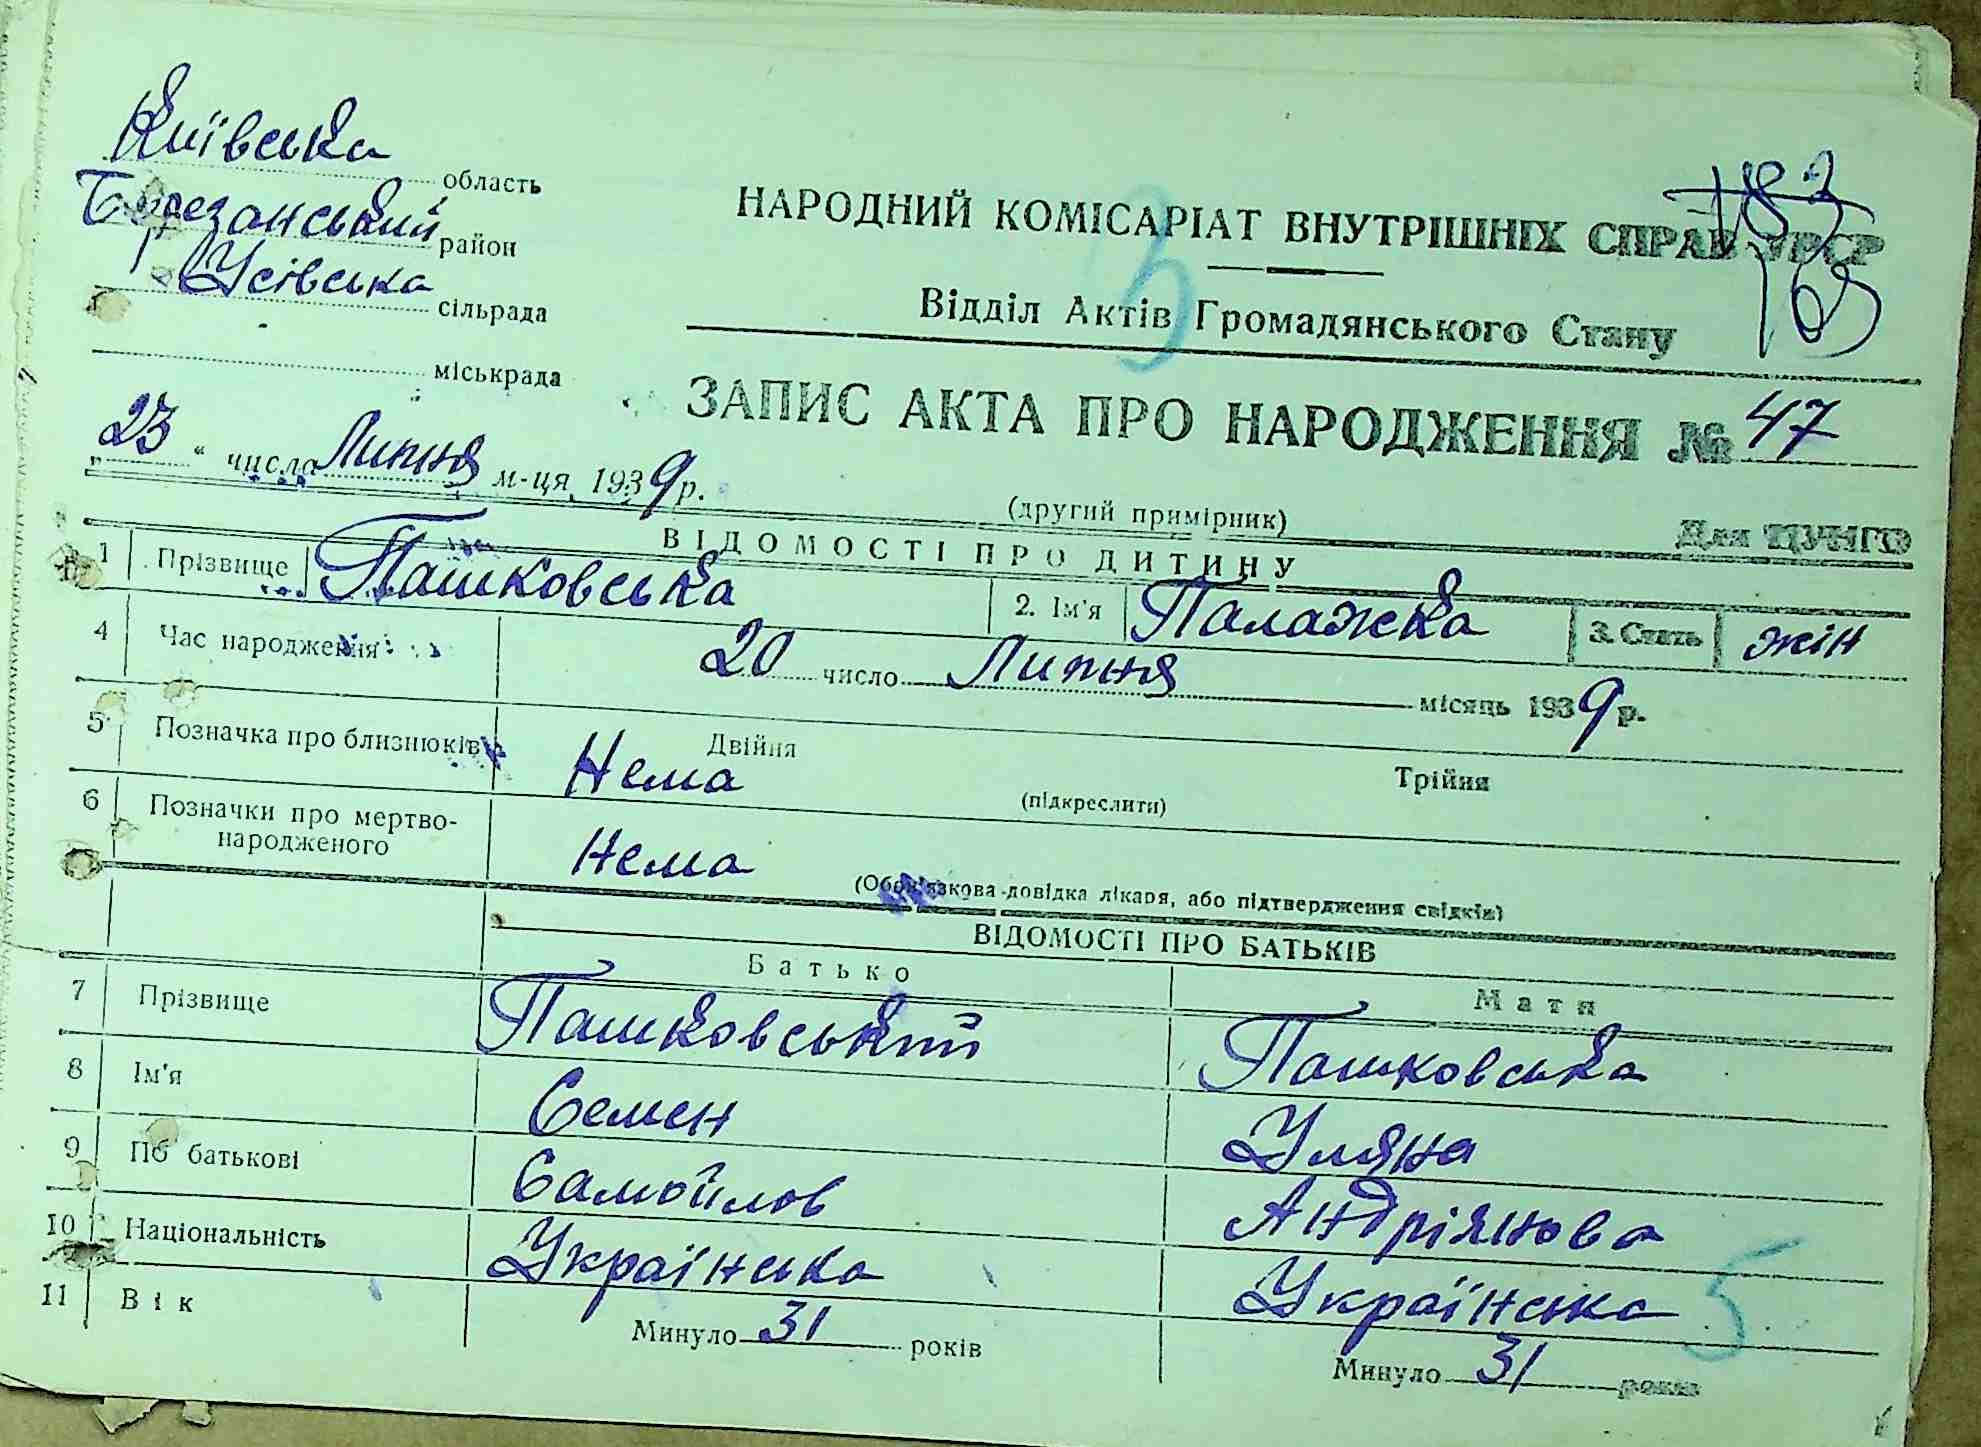 Київська область
Березанський район
Усівська сільрада
міськрада
НАРОДНИЙ КОМІСАРІАТ ВНУТРІШНІХ СПРАВ УРСР
183
163
3
Відділ Актів Громадянського Стану
ЗАПИС АКТА ПРО НАРОДЖЕННЯ № 47
„23“ числа Липня м-ця 1939 р.
(другий примірник)
Для ЦУНГО
ВІДОМОСТІ ПРО ДИТИНУ
1 Прізвище Пашковська 2. Ім'я Палажка 3. Стать жін
4 Час народження 20 число Липня місяць 1939 р.
5 Позначка про близнюків Нема Двійня (підкреслити) Трійня
6 Позначки про мертво-
народженого Нема (Обов'язкова довідка лікаря, або підтвердження свідків)
ВІДОМОСТІ ПРО БАТЬКІВ
Батько Мати
7 Прізвище Пашковський Пашковська
8 Ім'я Семен Уляна
9 По батькові Самойлов Андріянова
10 Національність Українська Українська
5
11 Вік Минуло 31 років Минуло 31 років